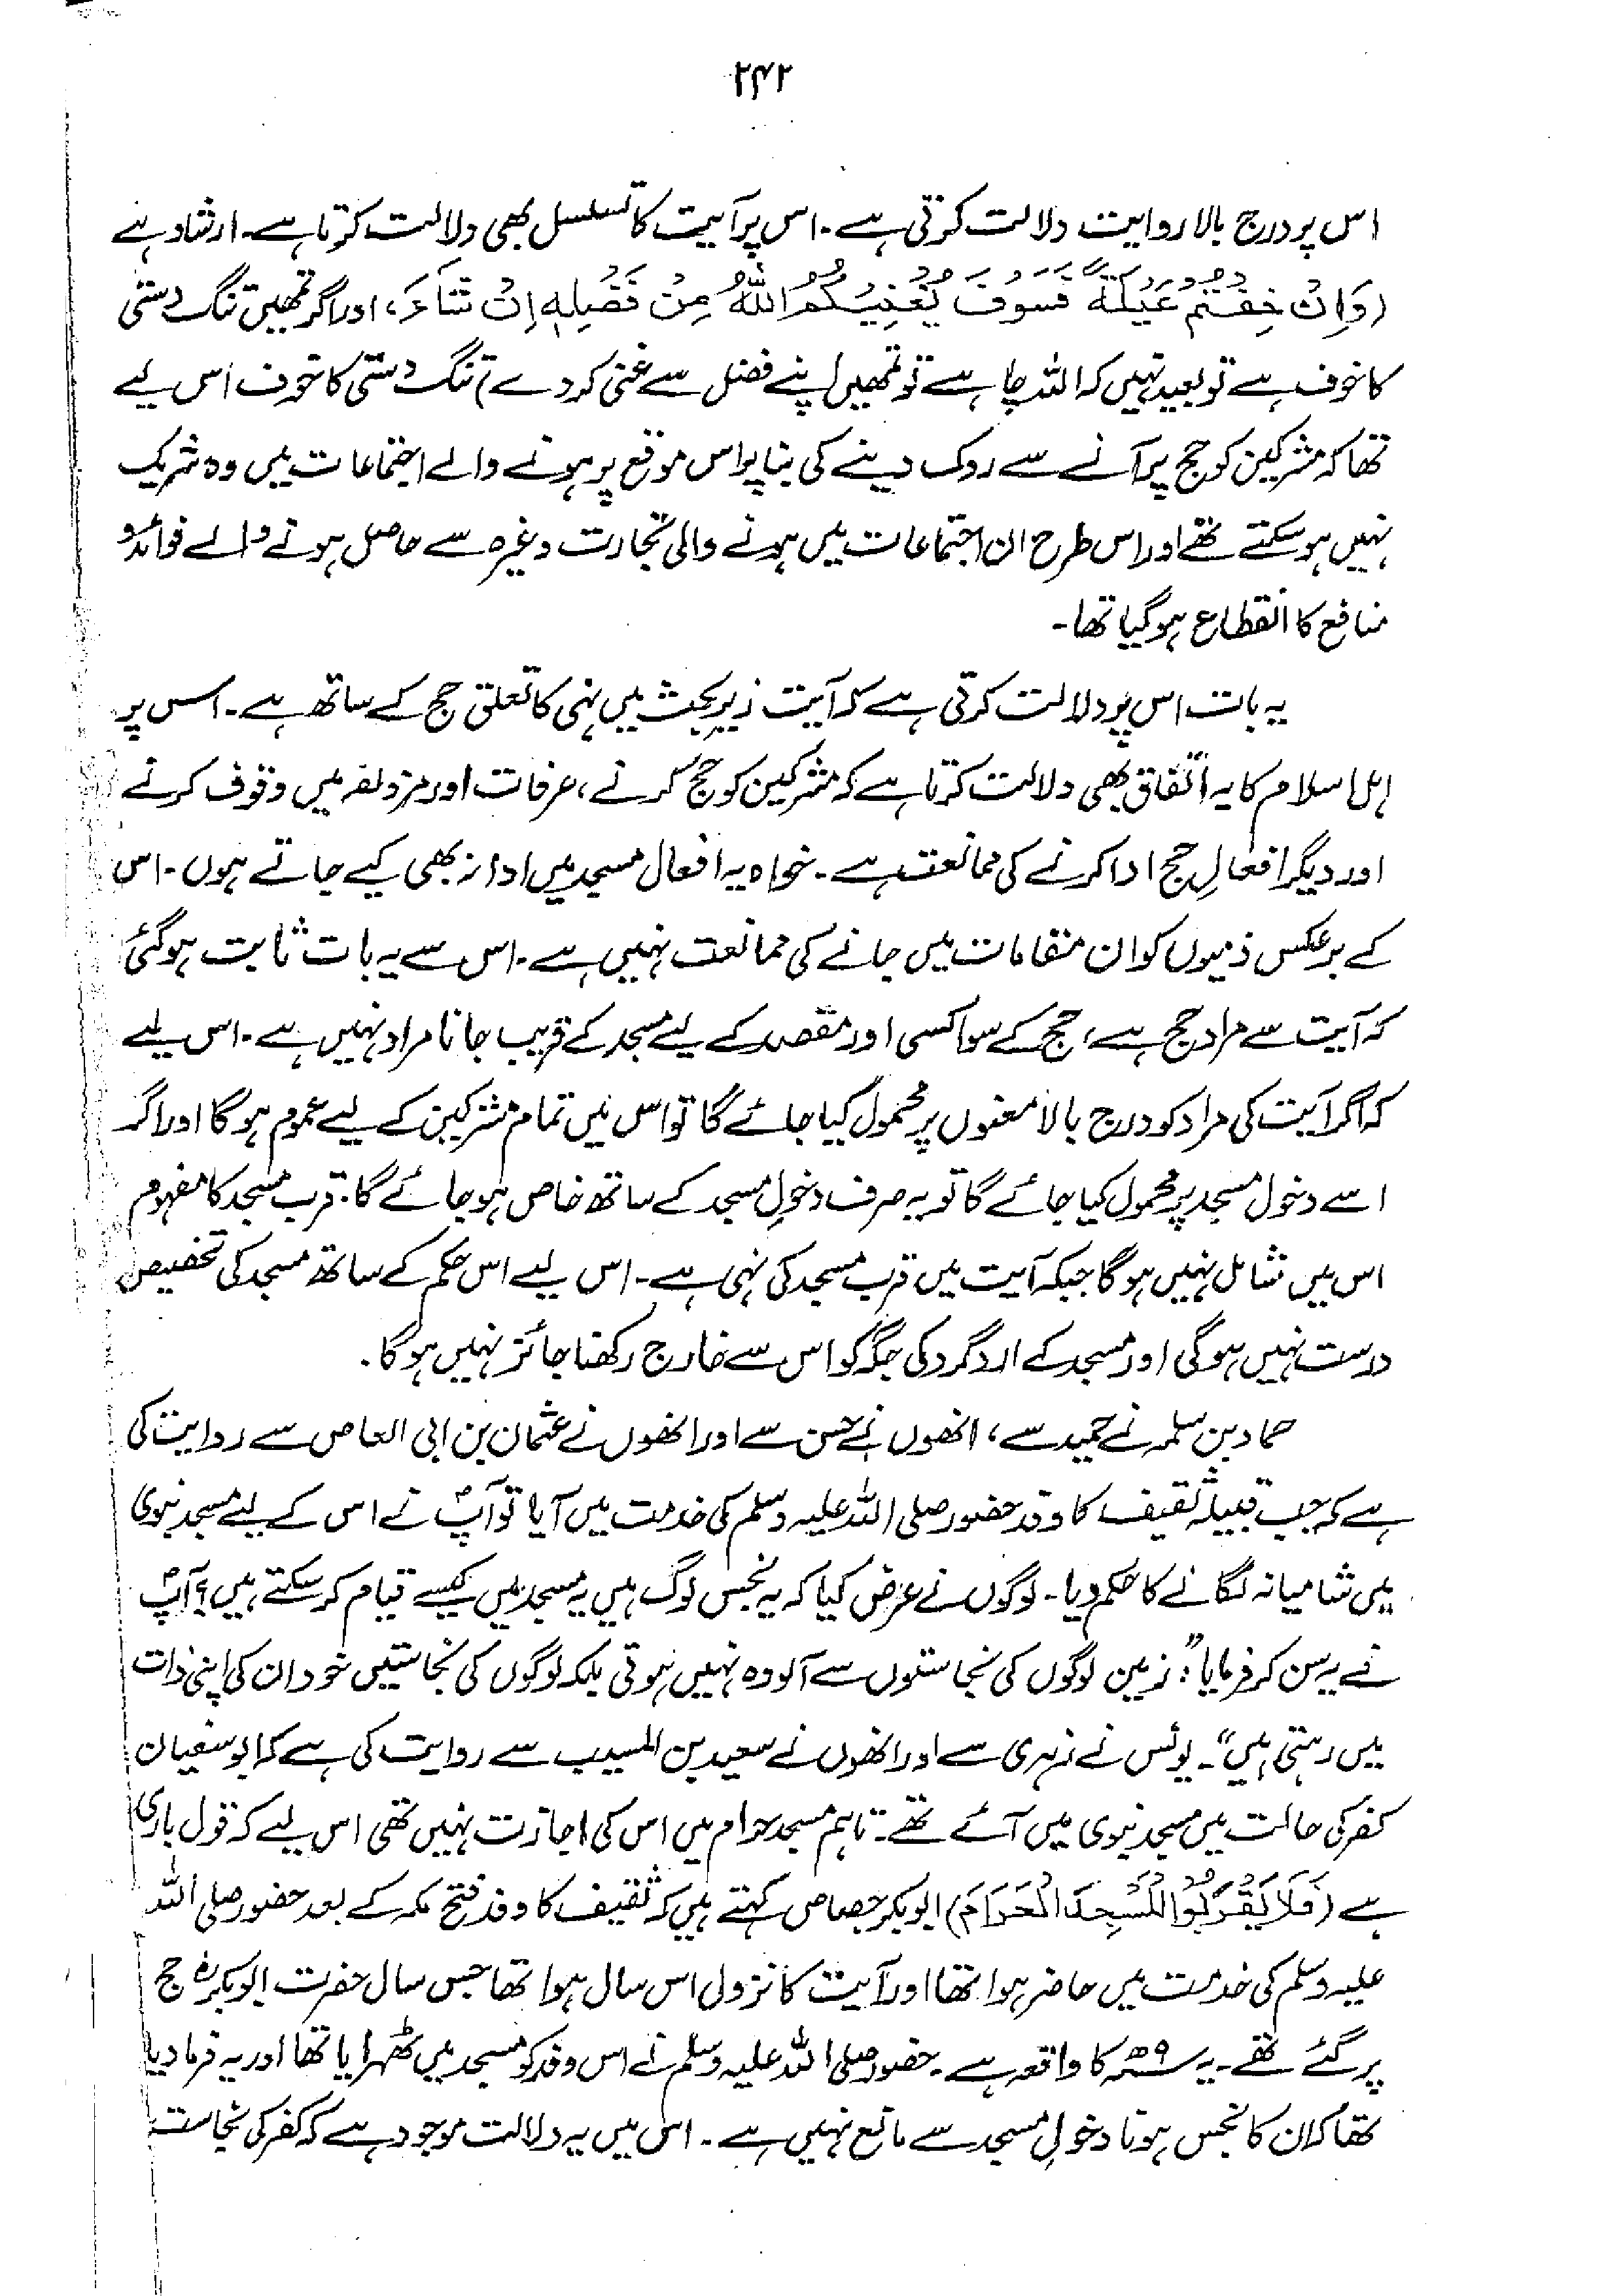 ۲۴۲
اس پر درج بالا روایت دلالت کرتی ہے۔ اس پر آیت کا تسلسل بھی دلالت کرتا ہے۔ ارشاد ہے
(وَاِنْ خِفْتُمْ عَیْلَةً فَسَوْفَ یُغْنِیْکُمُ اللّٰهُ مِنْ فَضْلِهٖ اِنْ شَآءَ، اور اگر تمھیں تنگ دستی
کا خوف ہے تو بعید نہیں کہ اللہ چاہے تو تمھیں اپنے فضل سے غنی کر دے) تنگ دستی کا خوف اس لیے
تھا کہ مشرکین کو حج پر آنے سے روک دینے کی بنا پر اس موقع پر ہونے والے اجتماعات میں وہ شریک
نہیں ہو سکتے تھے اور اس طرح ان اجتماعات میں ہونے والی تجارت وغیرہ سے حاصل ہونے والے فوائد و
منافع کا انقطاع ہو گیا تھا۔
یہ بات اس پر دلالت کرتی ہے کہ آیت زیر بحث میں نہی کا تعلق حج کے ساتھ ہے۔ اس پر
اہل اسلام کا یہ اتفاق بھی دلالت کرتا ہے کہ مشرکین کو حج کرنے، عرفات اور مزدلفہ میں وقوف کرنے
اور دیگر افعالِ حج ادا کرنے کی ممانعت ہے۔ خواہ یہ افعال مسجد میں ادا نہ بھی کیے جاتے ہوں۔ اس
کے برعکس ذمیوں کو ان مقامات میں جانے کی ممانعت نہیں ہے۔ اس سے یہ بات ثابت ہو گئی
کہ آیت سے مراد حج ہے، حج کے سوا کسی اور مقصد کے لیے مسجد کے قریب جانا مراد نہیں ہے۔ اس لیے
کہ اگر آیت کی مراد کو درج بالا معنوں پر محمول کیا جائے گا تو اس میں تمام مشرکین کے لیے عموم ہو گا اور اگر
اسے دخول مسجد پر محمول کیا جائے گا تو یہ صرف دخولِ مسجد کے ساتھ خاص ہو جائے گا۔ قرب مسجد کا مفہوم
اس میں شامل نہیں ہو گا جبکہ آیت میں قرب مسجد کی نہی ہے۔ اس لیے اس حکم کے ساتھ مسجد کی تخصیص
درست نہیں ہو گی اور مسجد کے ارد گرد کی جگہ کو اس سے خارج رکھنا جائز نہیں ہو گا۔
حماد بن سلمہ نے حمید سے، انھوں نے حسن سے اور انھوں نے عثمان بن ابی العاص سے روایت کی
ہے کہ جب قبیلہ ثقیف کا وفد حضور صلی اللہ علیہ وسلم کی خدمت میں آیا تو آپؐ نے اس کے لیے مسجد نبوی
میں شامیانہ لگانے کا حکم دیا۔ لوگوں نے عرض کیا کہ یہ نجس لوگ ہیں یہ مسجد میں کیسے قیام کر سکتے ہیں؟ آپؐ
نے یہ سن کر فرمایا: "زمین لوگوں کی نجاستوں سے آلودہ نہیں ہوتی بلکہ لوگوں کی نجاستیں خود ان کی اپنی ذات
میں رہتی ہیں"۔ یونس نے زہری سے اور انھوں نے سعید بن المسیب سے روایت کی ہے کہ ابو سفیان
کفر کی حالت میں مسجد نبوی میں آئے تھے۔ تاہم مسجد حرام میں اس کی اجازت نہیں تھی اس لیے کہ قول باری
ہے (فَلَا یَقْرَبُوا الْمَسْجِدَ الْحَرَامَ) ابوبکر جصاص کہتے ہیں کہ ثقیف کا وفد فتح مکہ کے بعد حضور صلی اللہ
علیہ وسلم کی خدمت میں حاضر ہوا تھا اور آیت کا نزول اس سال ہوا تھا جس سال حضرت ابوبکرؓ حج
پر گئے تھے۔ یہ ۹ھ کا واقعہ ہے۔ حضور صلی اللہ علیہ وسلم نے اس وفد کو مسجد میں ٹھہرایا تھا اور یہ فرما دیا
تھا کہ ان کا نجس ہونا دخولِ مسجد سے مانع نہیں ہے۔ اس میں یہ دلالت موجود ہے کہ کفر کی نجاست